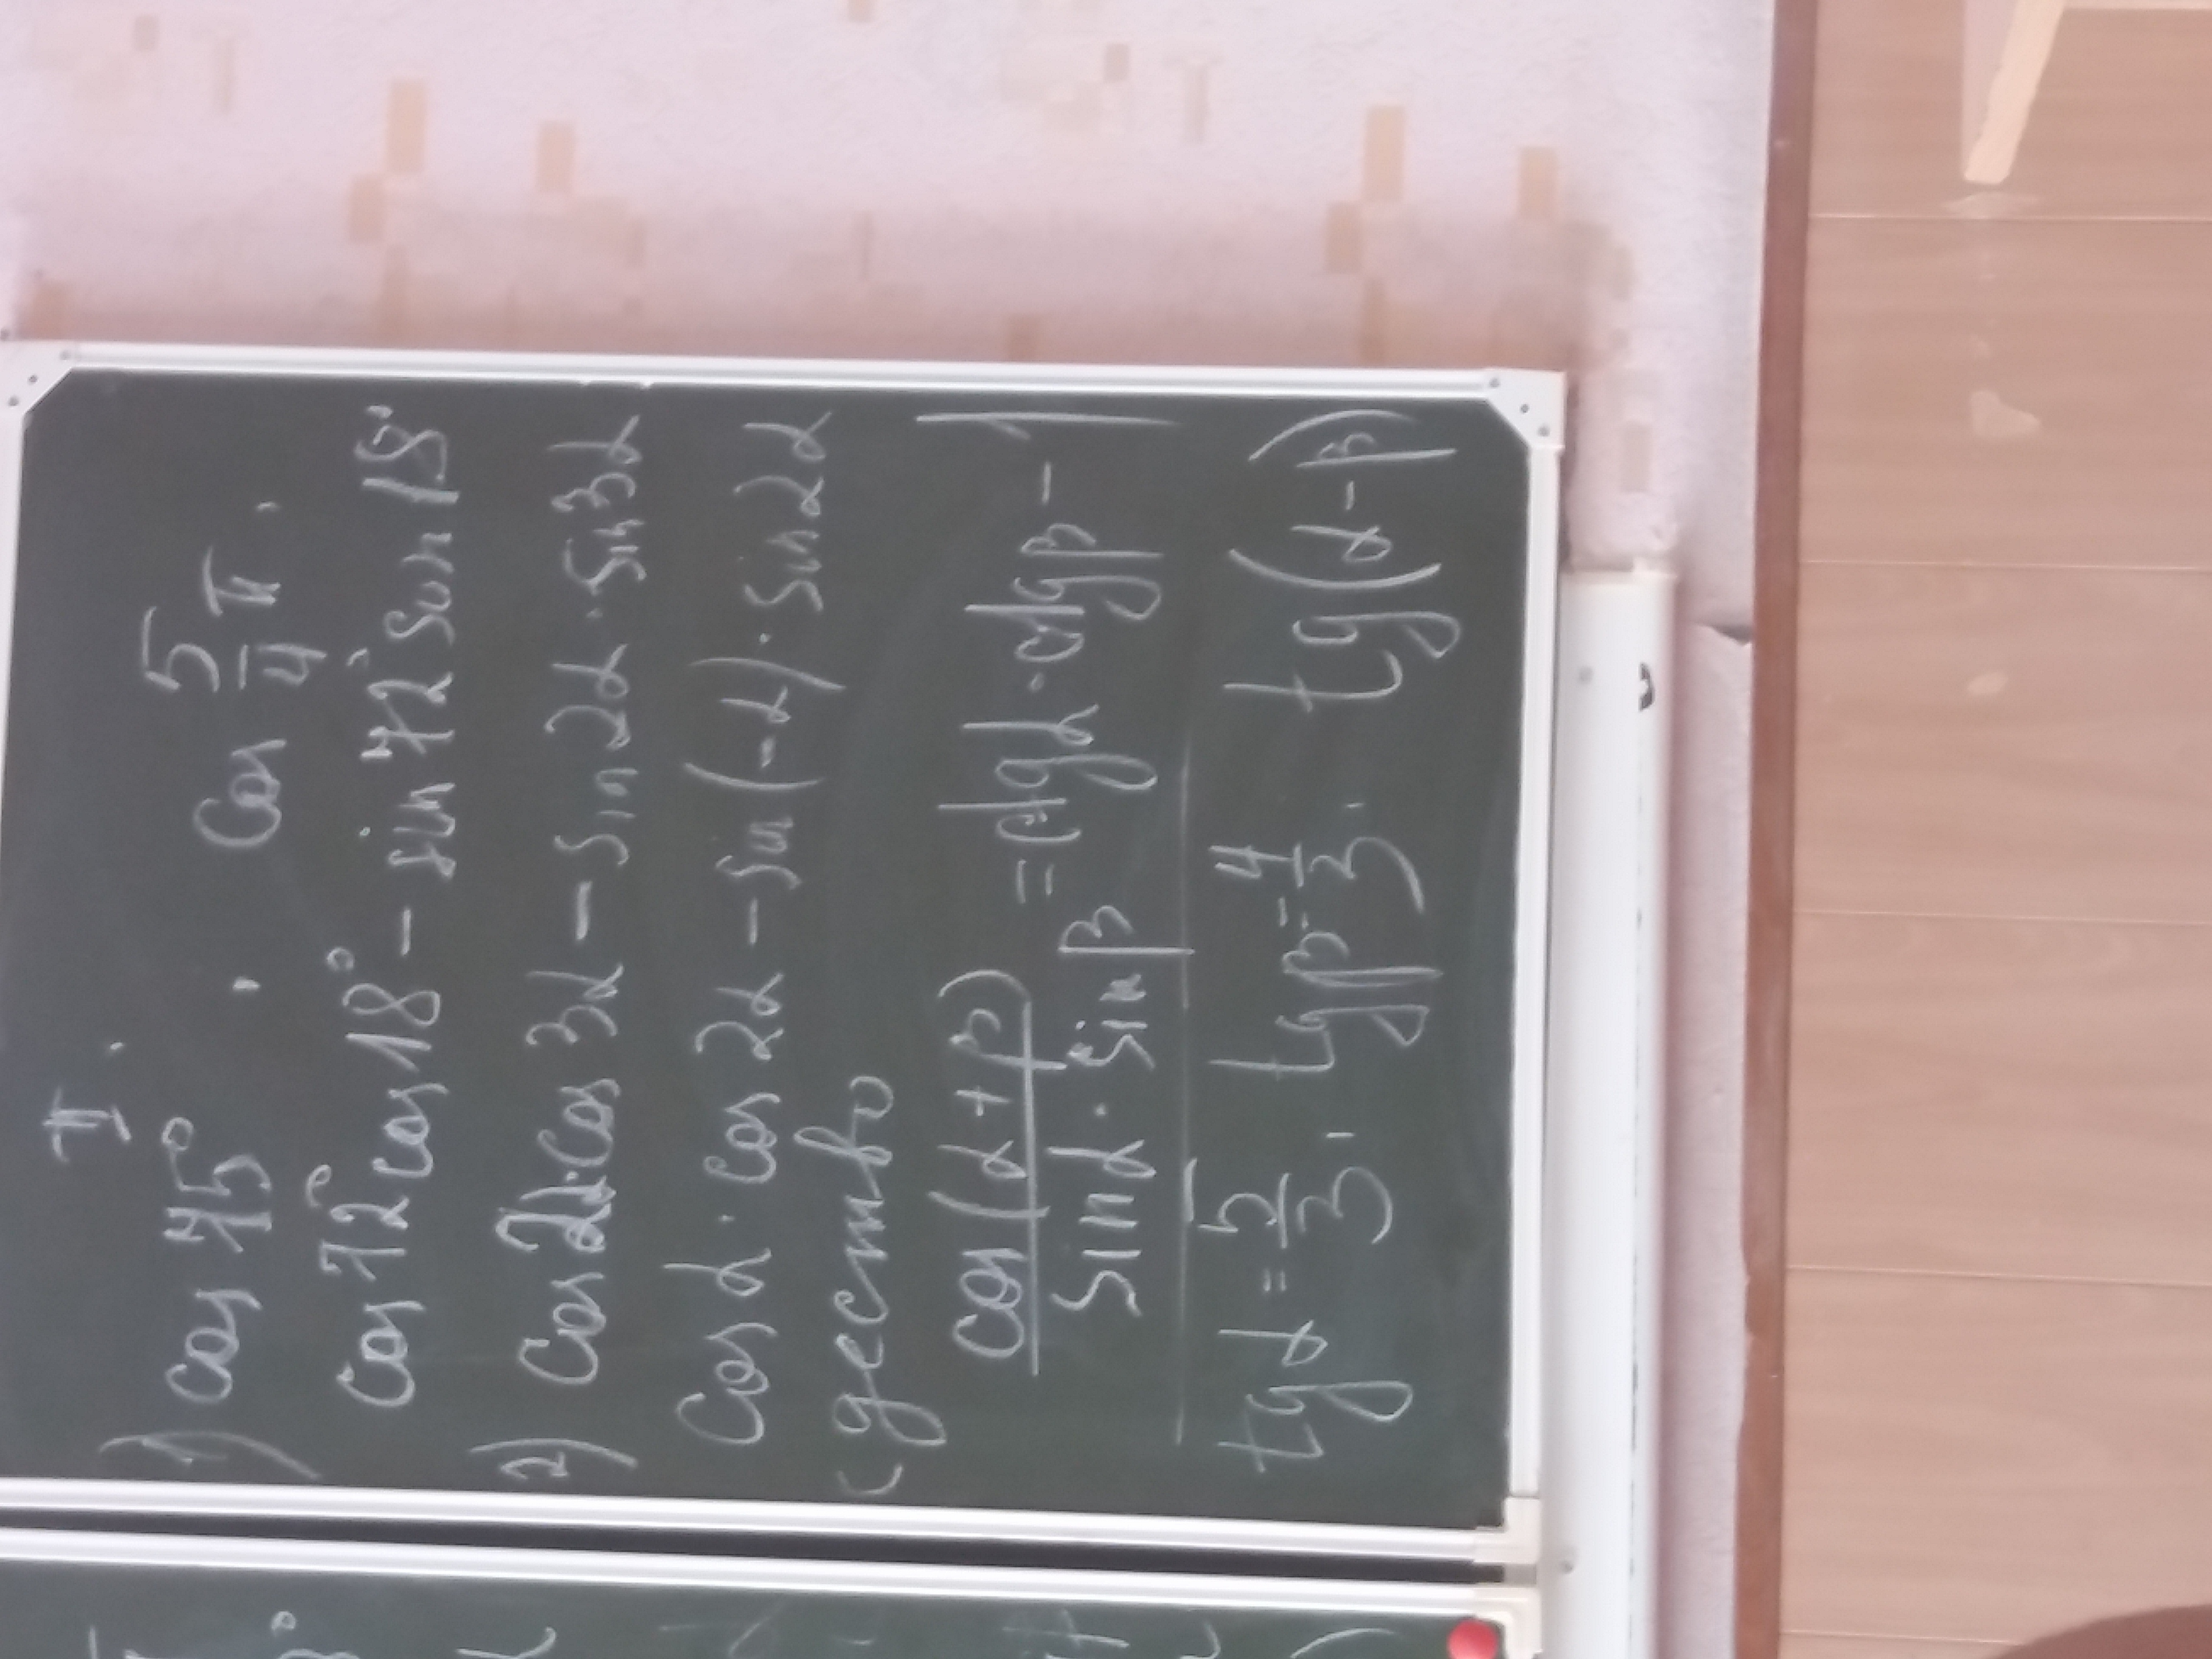 I.
1) cos 75°. cos 5/4 π.
cos 72° cos 18° - sin 72° sin 18°
2) cos 2α · cos 3α - sin 2α · sin 3α
cos α · cos 2α - sin (-α) · sin 2α
(gecmbo
cos (α + β) / sin α · sin β = ctg α · ctg β - 1
tg α = 5/3. tg β = 4/3. tg (α - β)